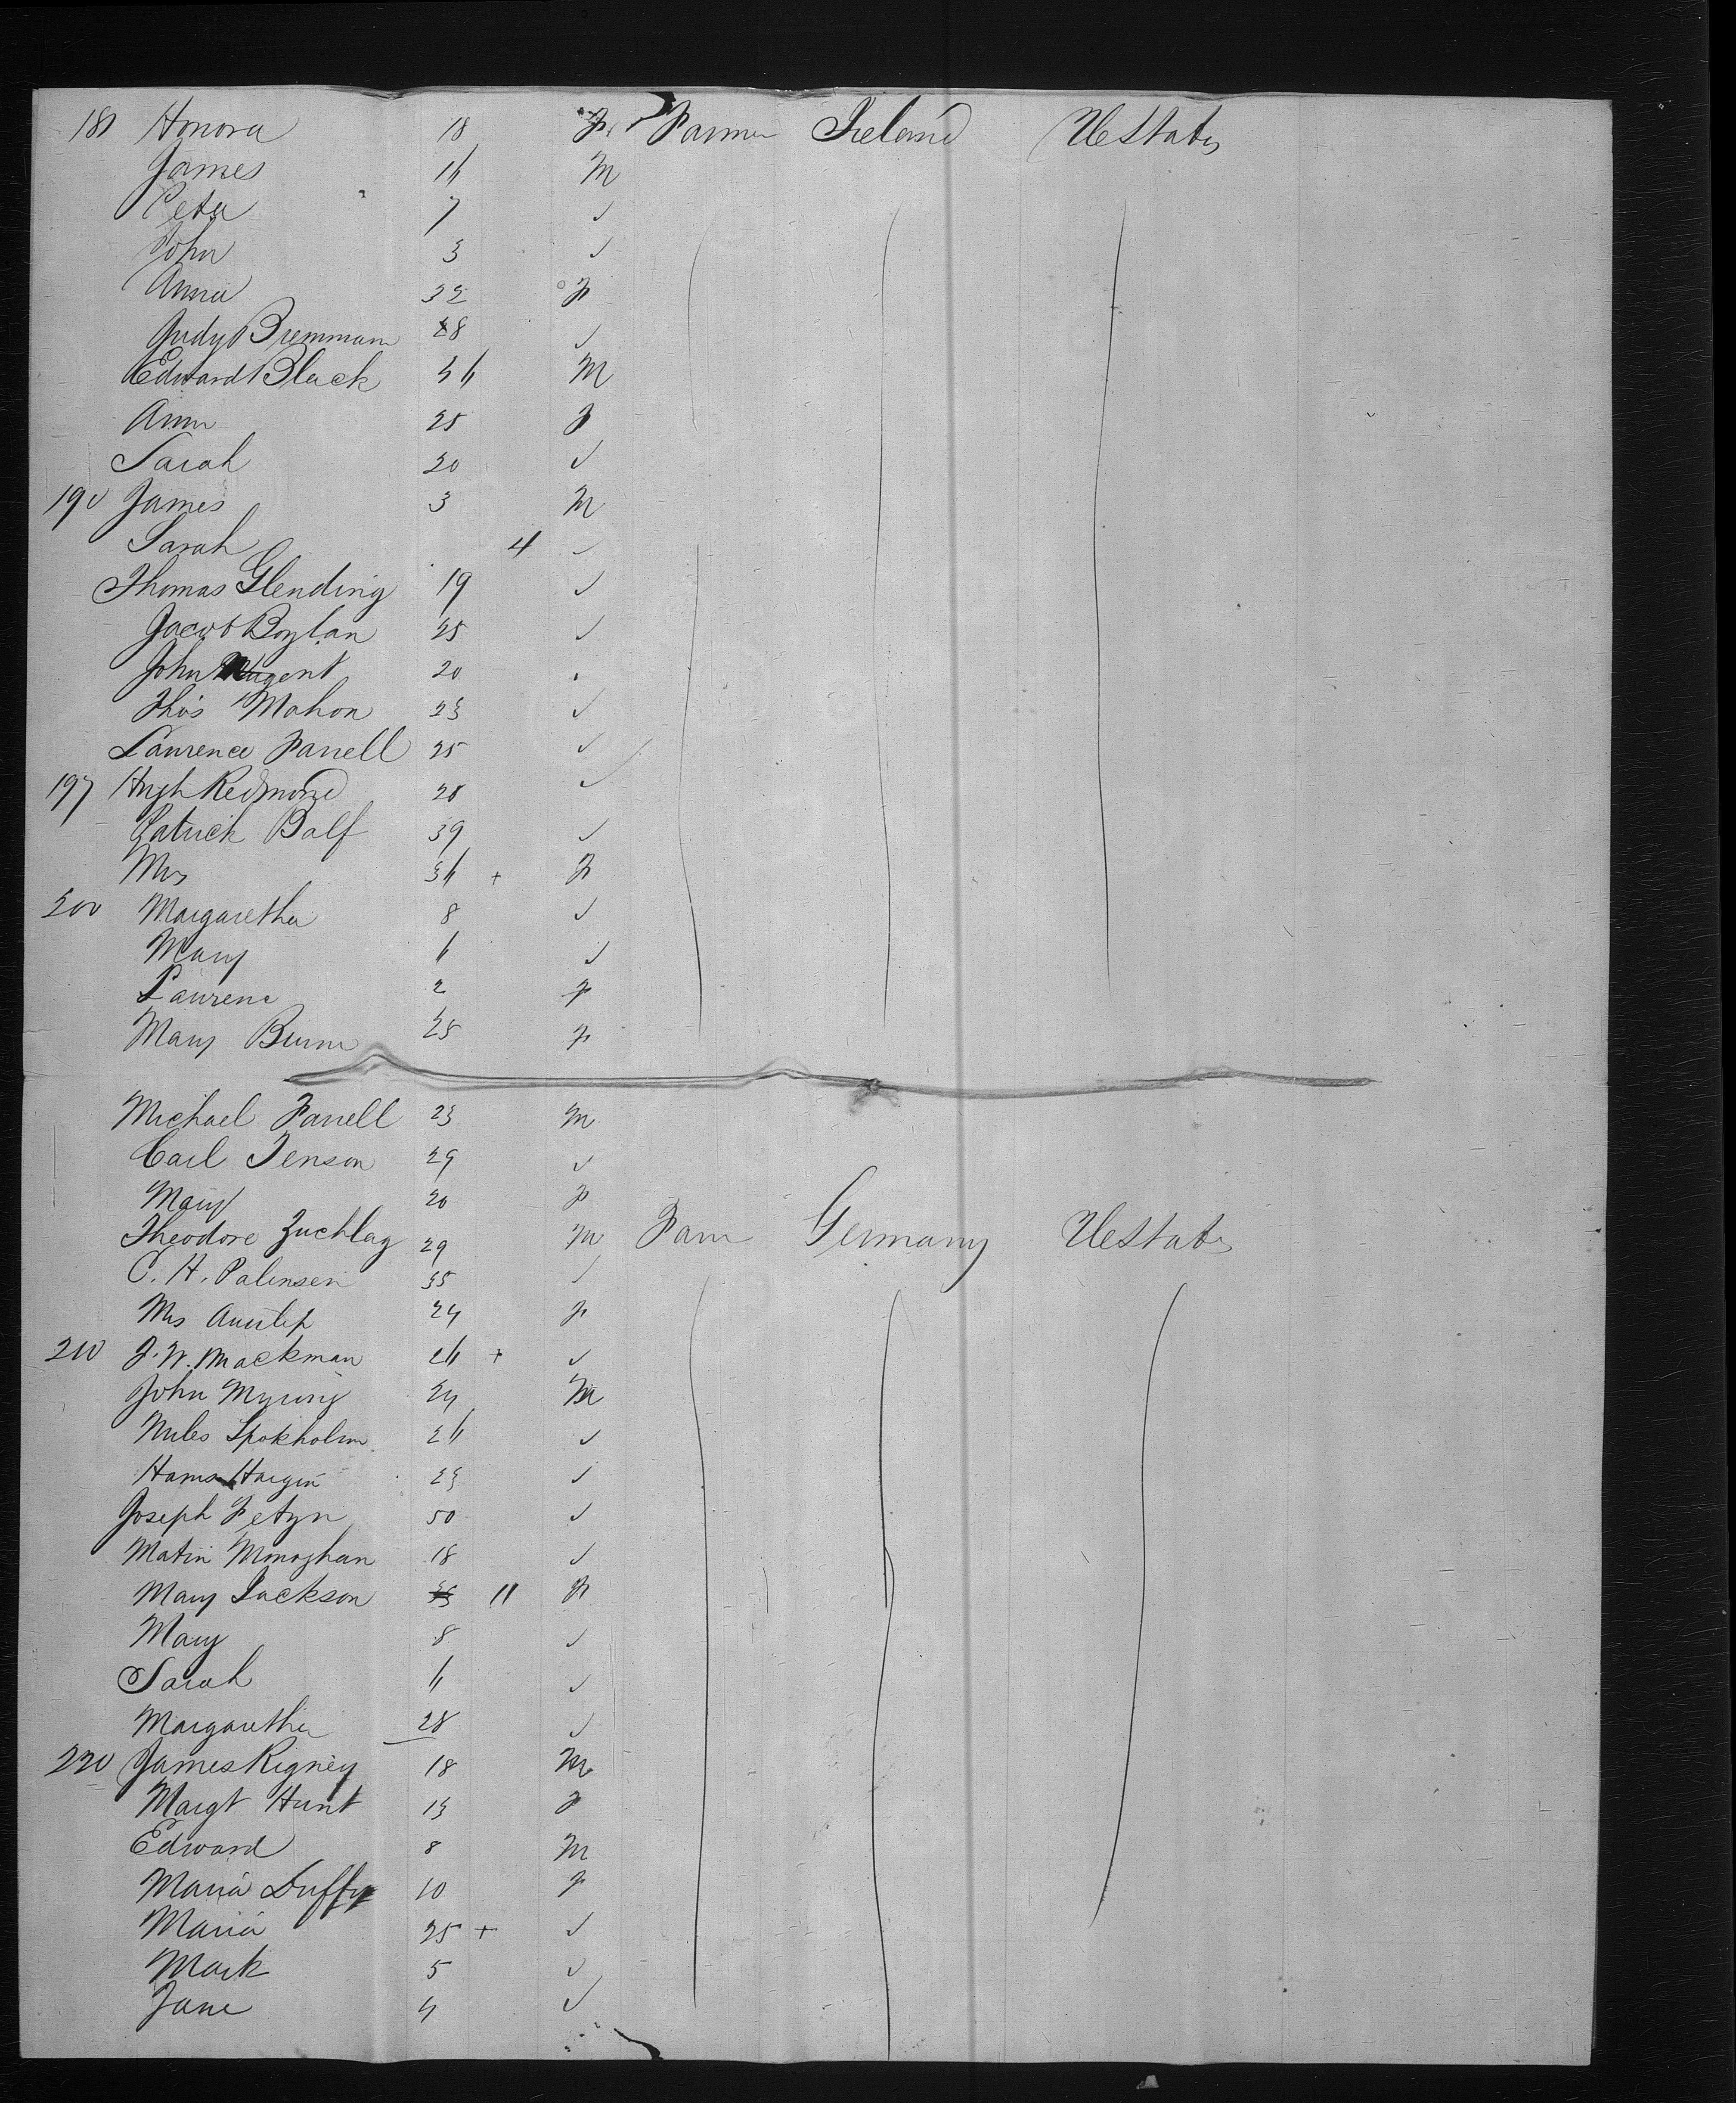 181 Honora 18 F Farmer Ireland UStates
James 16 M
Peter 7 ✓
John 3 ✓
Anna 32 F
Judy Bremmam 28 ✓
Edward Black 36 M
Ann 25 F
Sarah 20 ✓
190 James 3 M
Sarah 4 ✓
Thomas Glending 19 ✓
Jacob Boylan 25 ✓
John Nugent 20
Thos Mahon 23 ✓
Laurence Farrell 25 ✓
197 Hugh Redmond 28 ✓
Patrick Balf 39 ✓
Mrs 36 + F
200 Margaretha 8 ✓
Mary 6 ✓
Laurenc 2 F
Mary Burne 25 F
Michael Farrell 23 M
Carl Jenson 29 ✓
Mary 20 F
Theodore Zuchlag 29 M Farm Germany UStates
C. H. Palensen 35 ✓
Mrs 24 F
210 J. W. Mackman 26 + ✓
John 24 M
Niles Spokholm 26 ✓
Hans 23 ✓
Joseph 50 ✓
Matin Monoghan 18 ✓
Mary Jackson 11 F
Mary 8 ✓
Sarah 6 ✓
Margaretha 28 ✓
220 James Rigney 18 M
Margt Hunt 13 F
Edward 8 M
Maria Duffy 10 F
Maria 25 + ✓
Mark 5 ✓
Jane 4 ✓